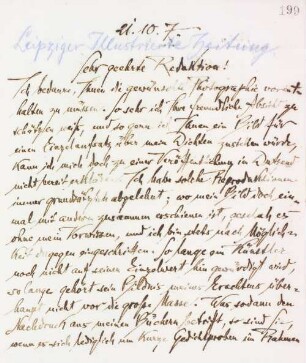 199
21. 10. 7
Leipziger Illustrierte Zeitung
Sehr geehrte Redaktion!
Ich bedaure, Ihnen die gewünschte Photographie vorent-
halten zu müssen. So sehr ich Ihre freundliche Absicht zu
schätzen weiß, und so gern ich Ihnen ein Bild für
einen Einzelaufsatz über mein Dichten zustellen würde,
kann ich mich doch zu einer Veröffentlichung im Dutzend
nicht bereit erklären. Ich habe solche Reproduktionen
immer grundsätzlich abgelehnt; wo mein Bild doch ein-
mal mit andern zusammen erschienen ist, geschah es
ohne mein Vorwissen, und ich bin stets nach Möglich-
keit dagegen eingeschritten. So lange ein Künstler
noch nicht auf seinen Einzelwert hin gewürdigt wird,
so lange gehört sein Bildnis meines Erachtens über-
haupt nicht vor die große Masse. Was sodann den
Nachdruck aus meinen Büchern betrifft, so sind Sie,
wenn es sich lediglich um kurze Gedichtproben im Rahmen